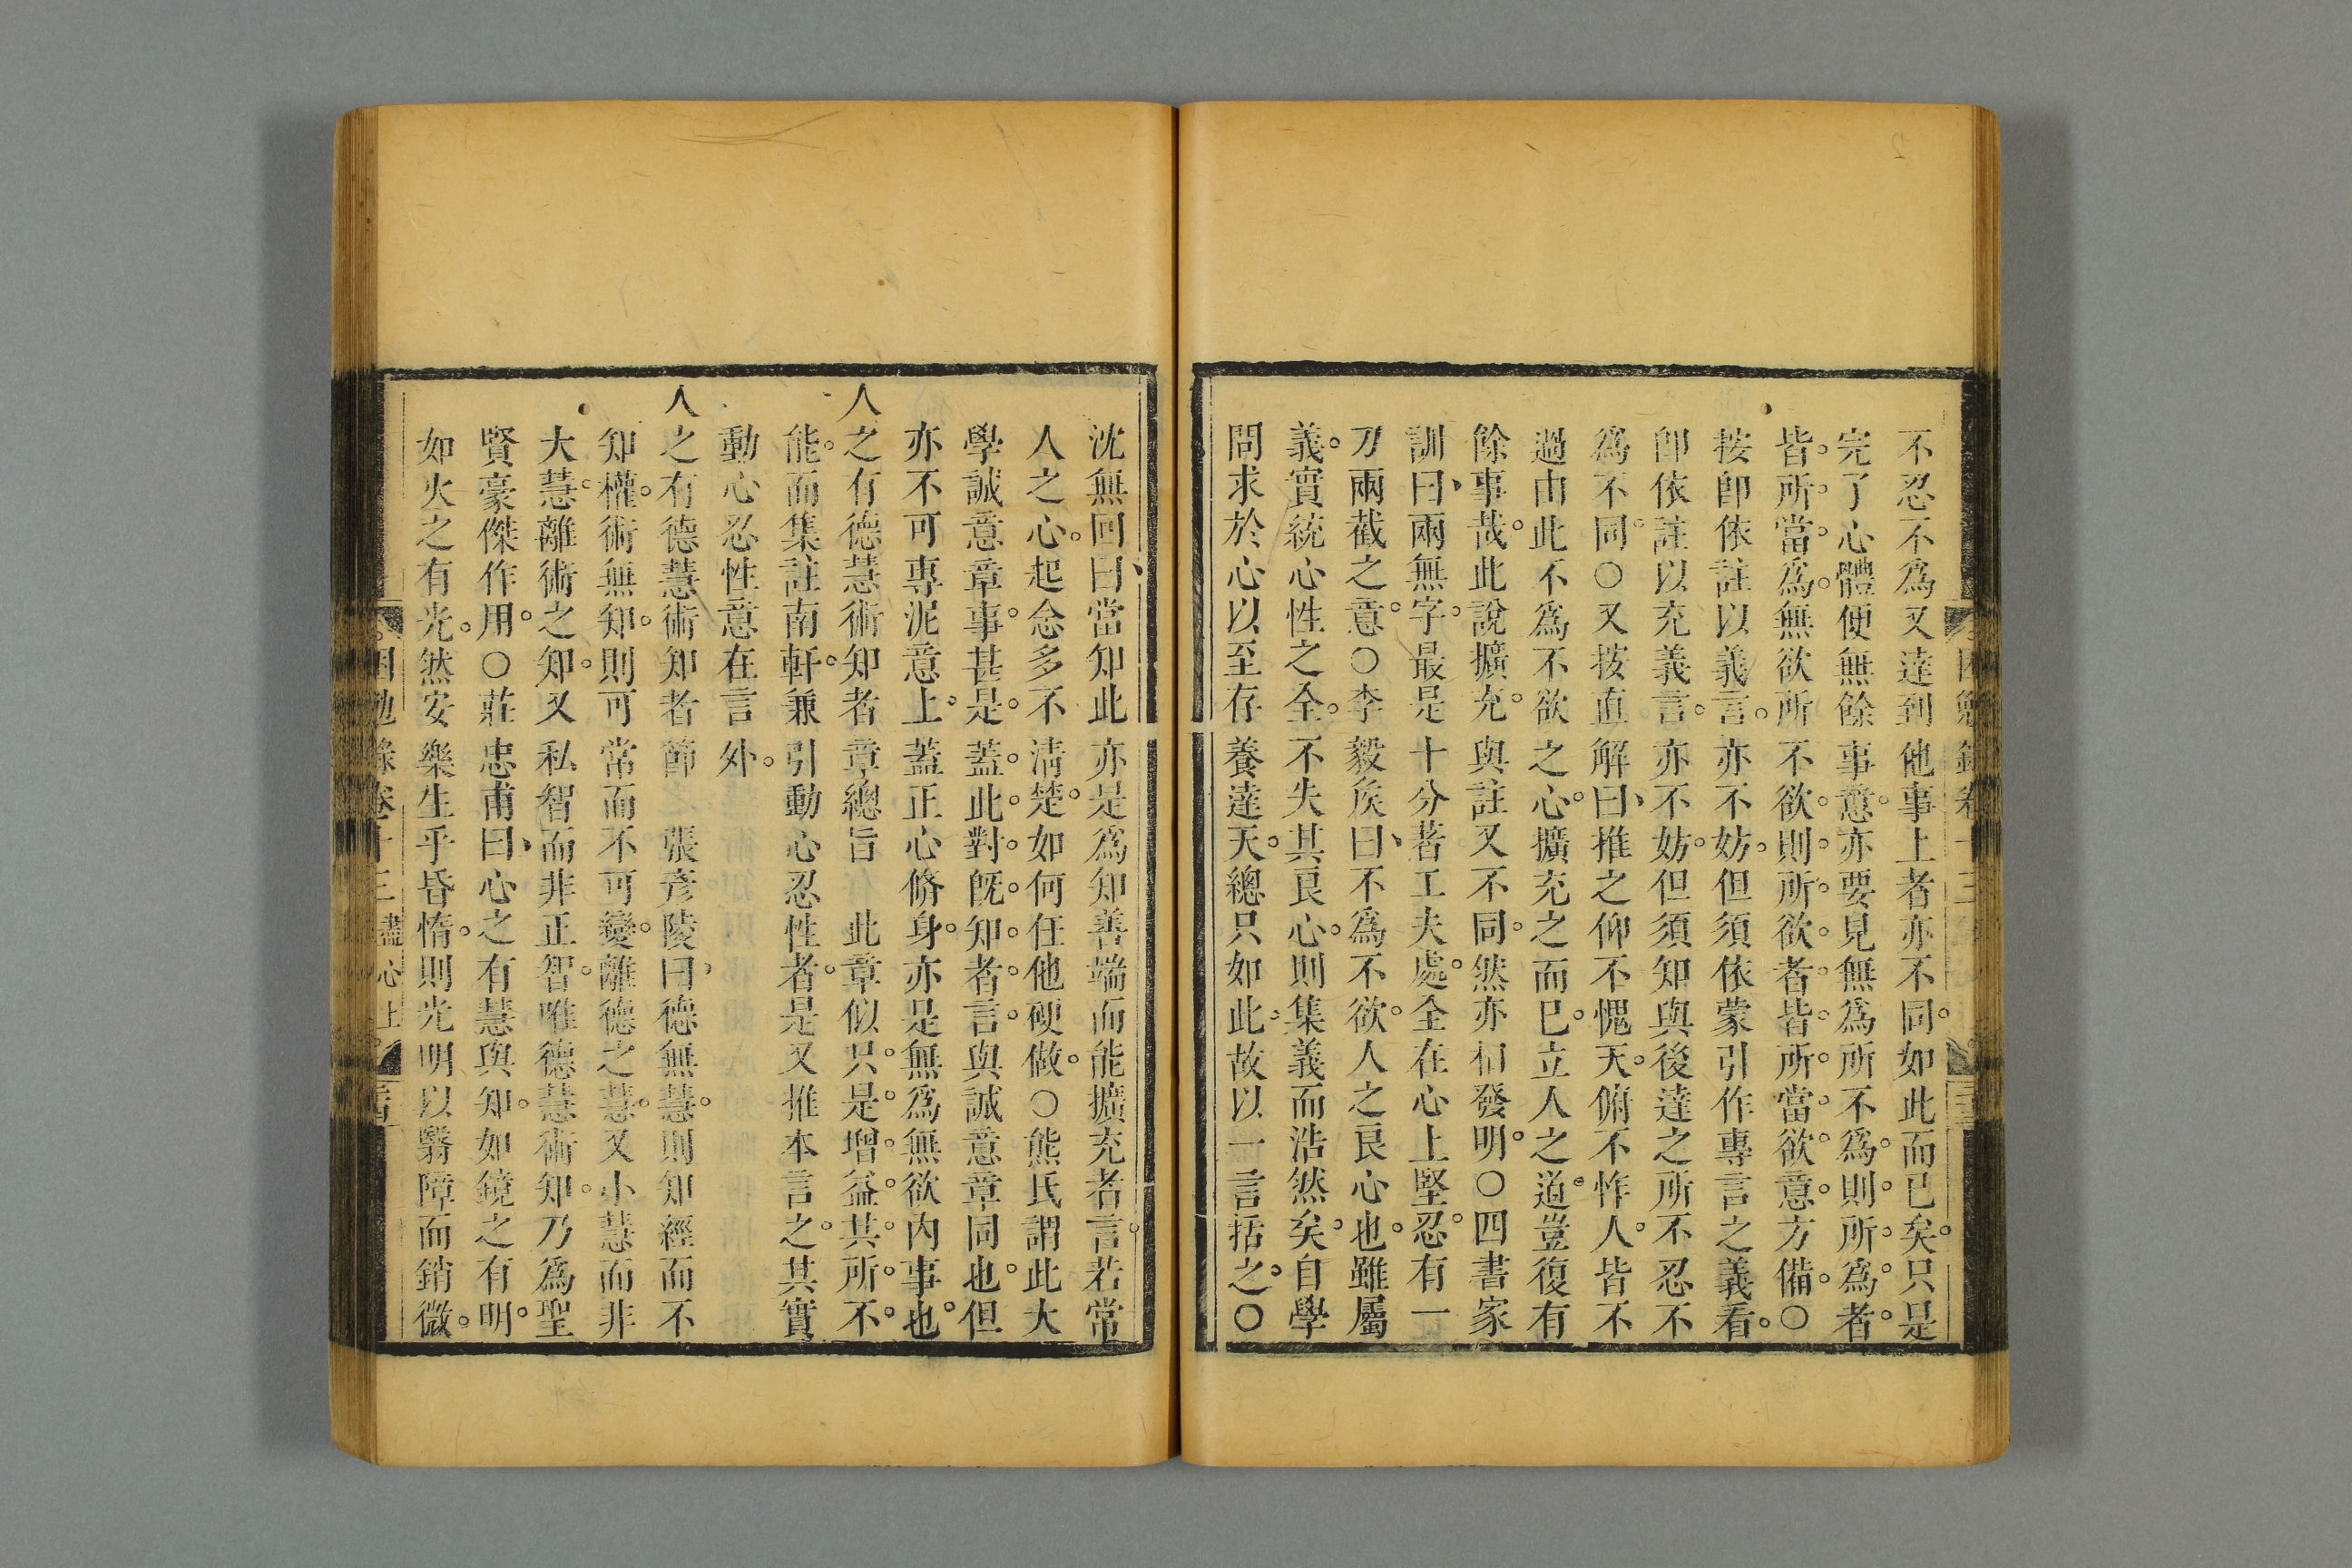 不忍不為又達到他事上者亦不同。如此而已矣。只是
完了心體便無餘事意。亦要見無為所不為。則所為者。
皆所當為。無欲所不欲。則所欲者。皆所當欲。意方備。○
按卽依註以義言。亦不妨。但須依蒙引作專言之義看。
卽依註以充義言。亦不妨。但須知與後達之所不忍不
為不同。○又按直解曰、推之仰不愧天。俯不怍人。皆不
過由此不為不欲之心。擴充之而已。立人之道。豈復有
餘事哉。此說擴充。與註又不同。然亦相發明。○四書家
訓曰、兩無字。最是十分著工夫處。全在心上堅忍。有一
刀兩截之意。○李毅矦曰、不為不欲。人之良心也。雖屬
義。實統心性之全。不失其良心。則集義而浩然矣。自學
問求於心以至存養達天。總只如此。故以一言括之。○
沈無回曰、當知此亦是為知善端而能擴充者言。若常
人之心。起念多不清楚。如何任他硬做。○熊氏謂此大
學誠意章事。甚是。蓋此對旣知者言。與誠意章同也。但
亦不可專泥意上。蓋正心脩身。亦是無為無欲內事也。
人之有德慧術知者章總旨　此章似只是增益其所不
能。而集註南軒。兼引動心忍性者。是又推本言之。其實
動心忍性意在言外。
人之有德慧術知者節　張彥陵曰、德無慧。則知經而不
知權。術無知。則可常而不可變。離德之慧。又小慧而非
大慧。離術之知。又私智而非正智。唯德慧術知。乃為聖
賢豪傑作用。○莊忠甫曰、心之有慧與知。如鏡之有明。
如火之有光。然安樂生乎昏惰。則光明以翳障而銷微。
困勉錄卷十三 盡心上